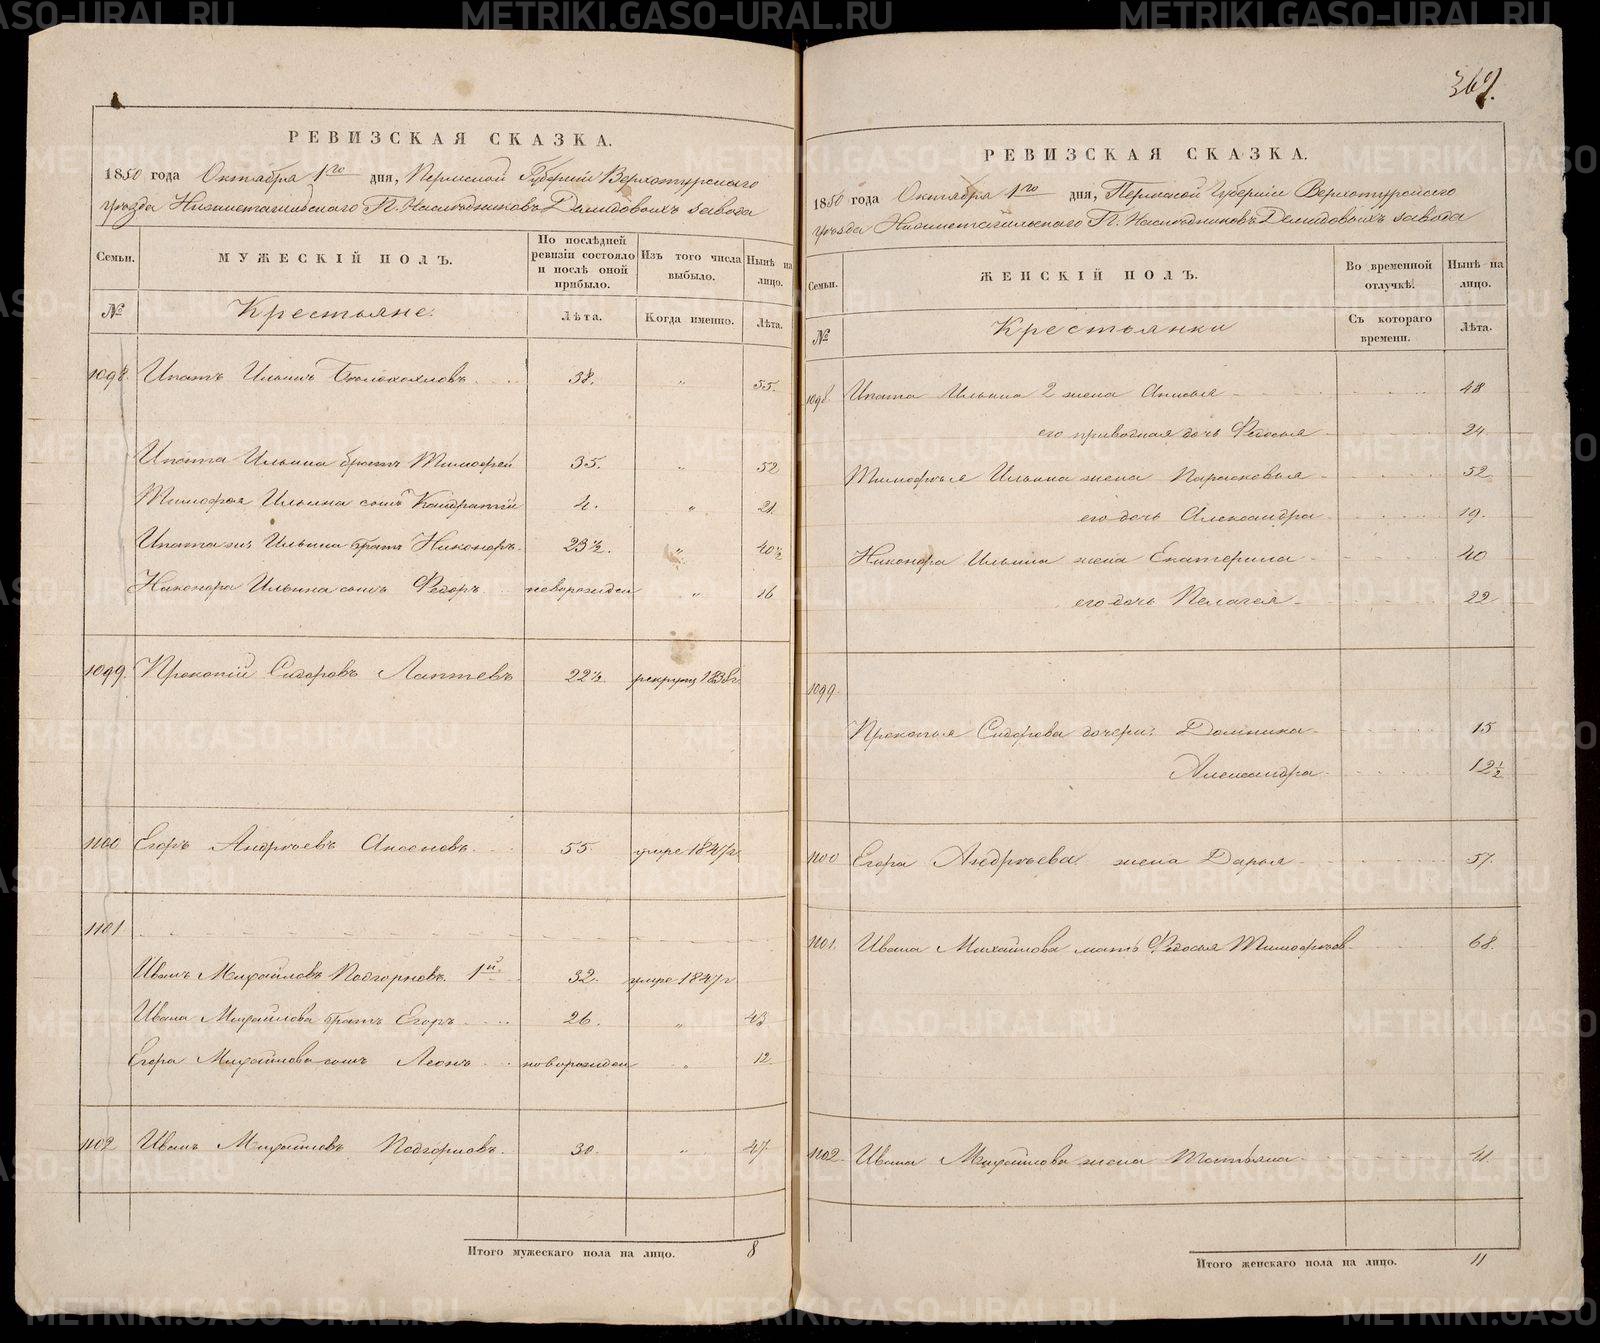 РЕВИЗСКАЯ СКАЗКА.
1850 года Октября 1го дня, Пермской Губерніи Верхотурскаго
уѣзда Нижнетагильскаго Г.П. Наслѣдниковъ Демидовыхъ завода
Семьи.
МУЖЕСКІЙ ПОЛЪ.
По послѣдней ревизіи состояло и послѣ оной прибыло.
Изъ того числа выбыло.
Нынѣ на лицо.
№
Крестьяне.
Лѣта.
Когда именно.
Лѣта.
1098. Ипатъ Ильинъ Бѣлохохловъ 38. " 55.
Ипата Ильина братъ Тимофей 35. " 52
Тимофея Ильина сынъ Кандратій 4. " 21.
Ипата Ильина братъ Никоноръ 23½. " 40½
Никонора Ильина сынъ Федоръ новорожден " 16
1099. Прокопій Сидоровъ Лаптевъ 22½. рекрутъ 1838г
1100 Егоръ Андреевъ Аксеновъ 55. умре 1847г.
1101
Иванъ Михайловъ Подгорновъ 1й. 32. умре 1847г
Ивана Михайлова братъ Егоръ 26. " 43
Егора Михайлова сынъ Леонъ новорожден " 12
1102 Иванъ Михайловъ Подгорновъ. 30. " 47.
Итого мужескаго пола на лицо. 8
367.
РЕВИЗСКАЯ СКАЗКА.
1850 года Октября 1го дня, Пермской Губерніи Верхотурскаго
уѣзда Нижнетагильскаго Г.П. Наслѣдниковъ Демидовыхъ завода
Семьи.
ЖЕНСКІЙ ПОЛЪ.
Во временной отлучкѣ.
Нынѣ на лицо.
№
Крестьянки
Съ котораго времени.
Лѣта.
1098. Ипата Ильина 2 жена Анисья 48
его приводная дочь Федосья 24.
Тимофея Ильина жена Парасковья 52.
его дочь Александра 19.
Никонора Ильина жена Екатерина 40
его дочь Пелагея 22.
1099.
Прокопья Сидорова дочери: Домника 15
Александра 12½
1100 Егора Андреева жена Дарья 57.
1101. Ивана Михайлова мать Федосья Тимофеев 68.
1102. Ивана Михайлова жена Татьяна 41.
Итого женскаго пола на лицо. 11
METRIKI.GASO-URAL.RU